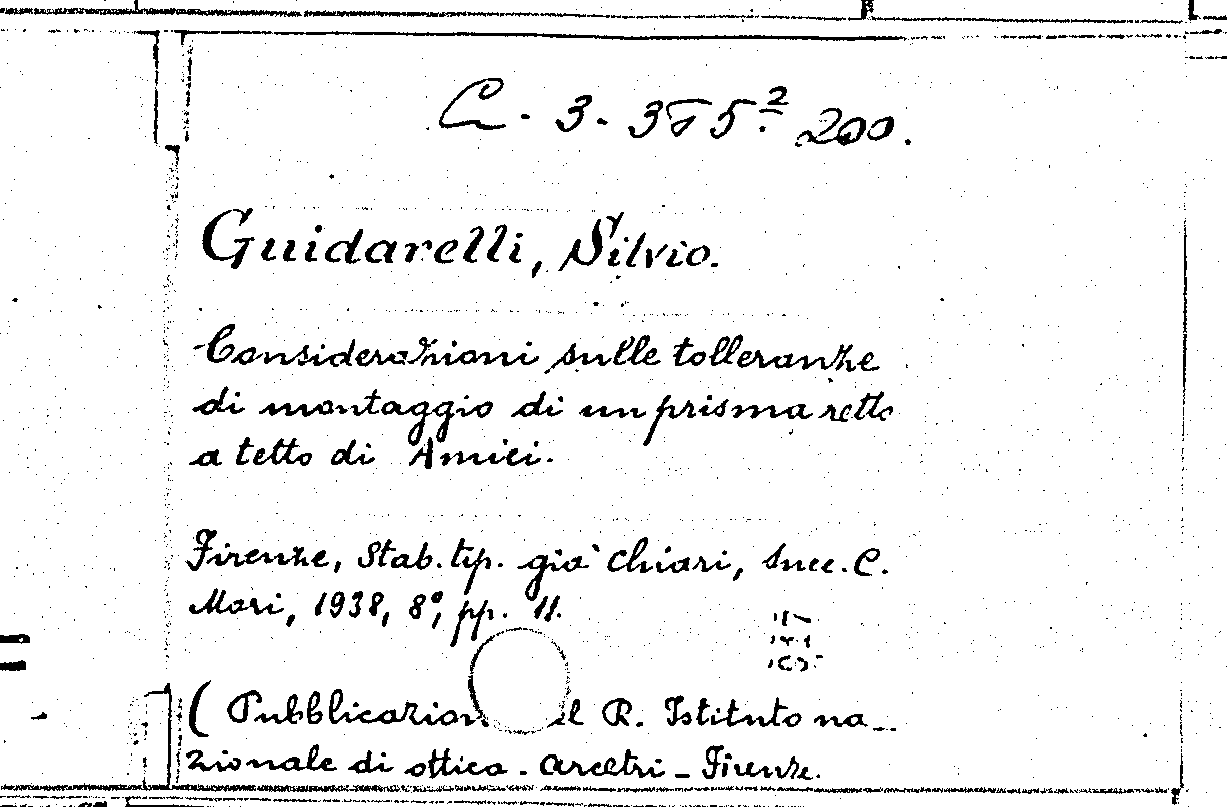 C. 3. 375² 200.
Guidarelli, Silvio.
Considerazioni sulle tolleranze
di montaggio di un prisma retto
a tetto di Amici.
Firenze, Stab. tip. già Chiari, succ. C.
Mori, 1938, 8°, pp. 11.
( Pubblicazion el R. Istituto na_
zionale di ottica. Arcetri _ Firenze.